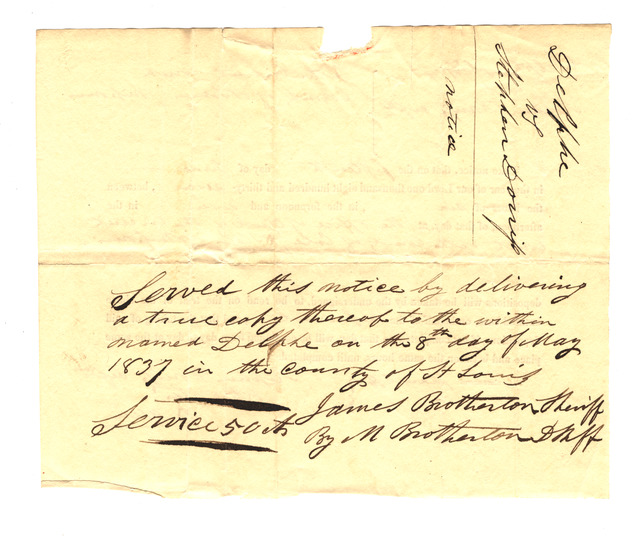 Delphe
vs
Stephen Dorrip
notice
Served this notice by delivering
a true copy thereof to the within
named Delphe on the 8th day of May
1837 in the county of St Louis
James Brotherton Sheriff
Service 50 cts
By M Brotherton D Shff